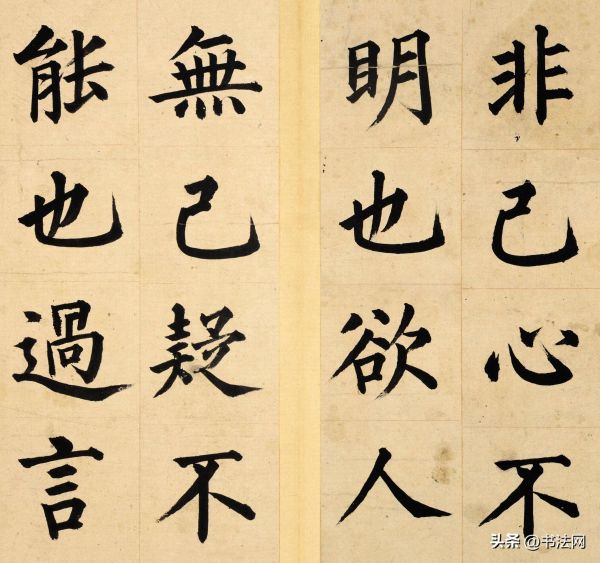 非己心不
明也欲人
無己疑不
能也過言
头条 @书法网